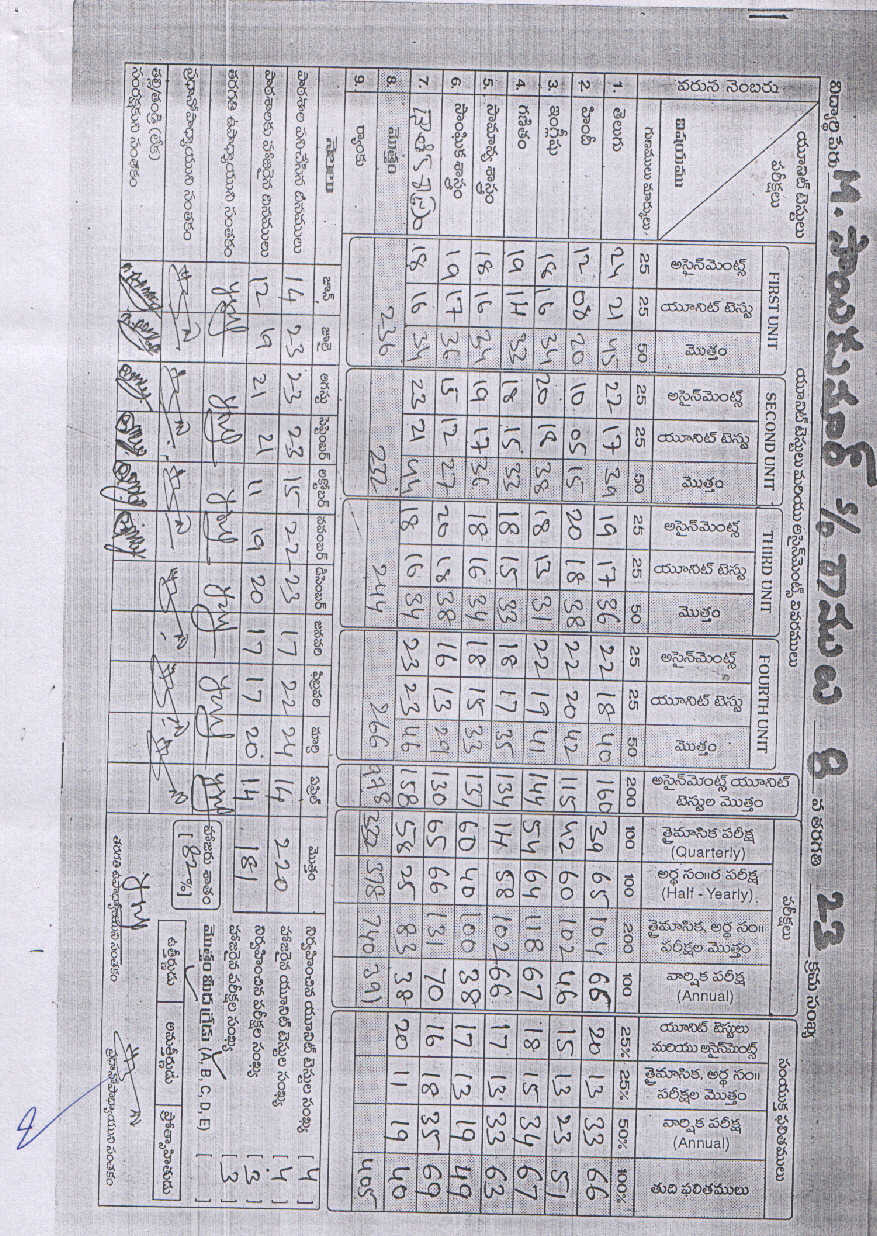 విద్యార్థి పేరు M. సాయికుమార్ S/o రాములు 8 వ తరగతి 23 క్రమ సంఖ్య
వరుస నెంబరు యూనిట్ టెస్టులు పరీక్షలు యూనిట్ టెస్టులు మరియు అసైన్‌మెంట్స్ వివరములు పరీక్షలు సంయుక్త ఫలితములు
విషయము FIRST UNIT SECOND UNIT THIRD UNIT FOURTH UNIT అసైన్‌మెంట్స్ యూనిట్ టెస్టుల మొత్తం త్రైమాసిక పరీక్ష (Quarterly) అర్థ సం॥ర పరీక్ష (Half - Yearly) త్రైమాసిక, అర్థ సం॥ పరీక్షల మొత్తం వార్షిక పరీక్ష (Annual) యూనిట్ టెస్టులు మరియు అసైన్‌మెంట్స్ త్రైమాసిక, అర్థ సం॥ పరీక్షల మొత్తం వార్షిక పరీక్ష (Annual) తుది ఫలితములు
అసైన్‌మెంట్స్ యూనిట్ టెస్టు మొత్తం అసైన్‌మెంట్స్ యూనిట్ టెస్టు మొత్తం అసైన్‌మెంట్స్ యూనిట్ టెస్టు మొత్తం అసైన్‌మెంట్స్ యూనిట్ టెస్టు మొత్తం
గుణములు మార్కులు 25 25 50 25 25 50 25 25 50 25 25 50 200 100 100 200 100 25% 25% 50% 100%
1. తెలుగు 24 21 45 22 17 39 19 17 36 22 18 40 160 39 65 104 65 20 13 33 66
2. హిందీ 12 08 20 10 05 15 20 18 38 22 20 42 115 42 60 102 46 15 13 23 51
3. ఇంగ్లీషు 18 16 34 20 18 38 18 13 31 22 19 41 144 54 64 118 67 18 15 34 67
4. గణితం 19 14 33 18 15 33 18 15 33 18 17 35 134 14 58 102 66 17 13 33 63
5. సామాన్య శాస్త్రం 18 16 34 19 17 36 18 16 34 18 15 33 137 60 40 100 38 17 13 19 49
6. సాంఘిక శాస్త్రం 19 17 36 15 12 27 20 18 38 16 13 29 130 65 66 131 70 16 18 35 69
7. భౌతిక శాస్త్రం 18 16 34 23 21 44 18 16 34 23 23 46 158 58 25 83 38 20 11 19 40
8. మొత్తం 236 232 244 266 978 332 378 740 391 405
9. ర్యాంకు
నెలలు జూన్ జూలై ఆగస్టు సెప్టెంబర్ అక్టోబర్ నవంబర్ డిసెంబర్ జనవరి ఫిబ్రవరి మార్చి ఏప్రిల్ మొత్తం
పాఠశాల పనిచేసిన దినములు 14 23 23 23 15 22 23 17 22 24 14 220
పాఠశాలకు హాజరైన దినములు 12 19 21 21 11 19 20 17 17 20 14 181
తరగతి ఉపాధ్యాయుని సంతకం
ప్రధానోపాధ్యాయుని సంతకం
తల్లి/తండ్రి (లేక) సంరక్షకుని సంతకం
హాజరు శాతం [82%]
నిర్వహించిన యూనిట్ టెస్టుల సంఖ్య [4]
హాజరైన యూనిట్ టెస్టుల సంఖ్య [4]
నిర్వహించిన పరీక్షల సంఖ్య [3]
హాజరైన పరీక్షల సంఖ్య [3]
మొత్తం మీద గ్రేడు (A, B, C, D, E) [ ]
ఉత్తీర్ణుడు అనుత్తీర్ణుడు ప్రోత్సాహితుడు
తరగతి ఉపాధ్యాయుని సంతకం ప్రధానోపాధ్యాయుని సంతకం